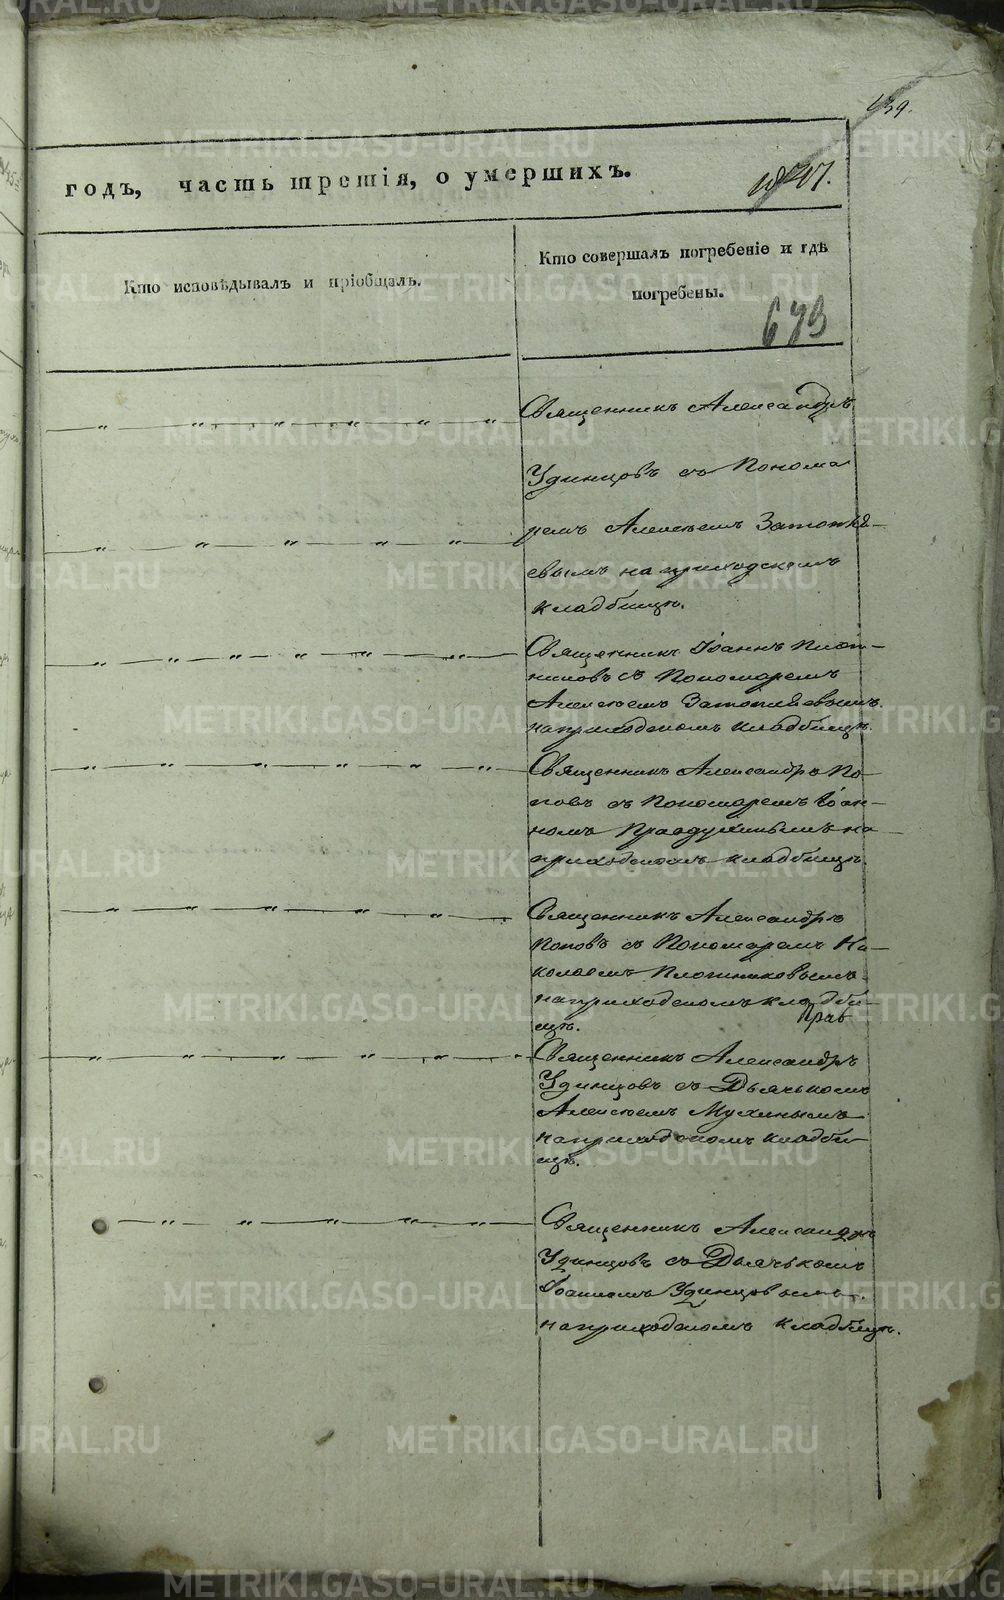 439.
годъ, часть третія, о умершихъ.
Кто исповѣдывалъ и пріобщалъ.
Кто совершалъ погребеніе и гдѣ
погребены.
673
Священникъ Александръ
Удинцовъ съ Понома
ремъ Алексѣемъ Затопля-
евымъ на приходскомъ
кладбищѣ.
Священникъ Іоаннъ Плот-
никовъ съ Пономаремъ
Алексѣемъ Затопляевымъ
на приходскомъ кладбищѣ.
Священникъ Александръ По-
повъ съ Пономаремъ Іоан-
номъ Правдухинымъ на
приходскомъ кладбищѣ.
Священникъ Александръ
Поповъ съ Пономаремъ Ни-
колаемъ Плотниковымъ
на приходскомъ кладби-
щѣ.
Прав
Священникъ Александръ
Удинцовъ съ Дьячькомъ
Алексѣемъ Мухинымъ
на приходскомъ кладби-
щѣ.
Священникъ Александръ
Удинцовъ съ Дьячькомъ
Іоанномъ Удинцовымъ
на приходскомъ кладбищѣ.
METRIKI.GASO-URAL.RU